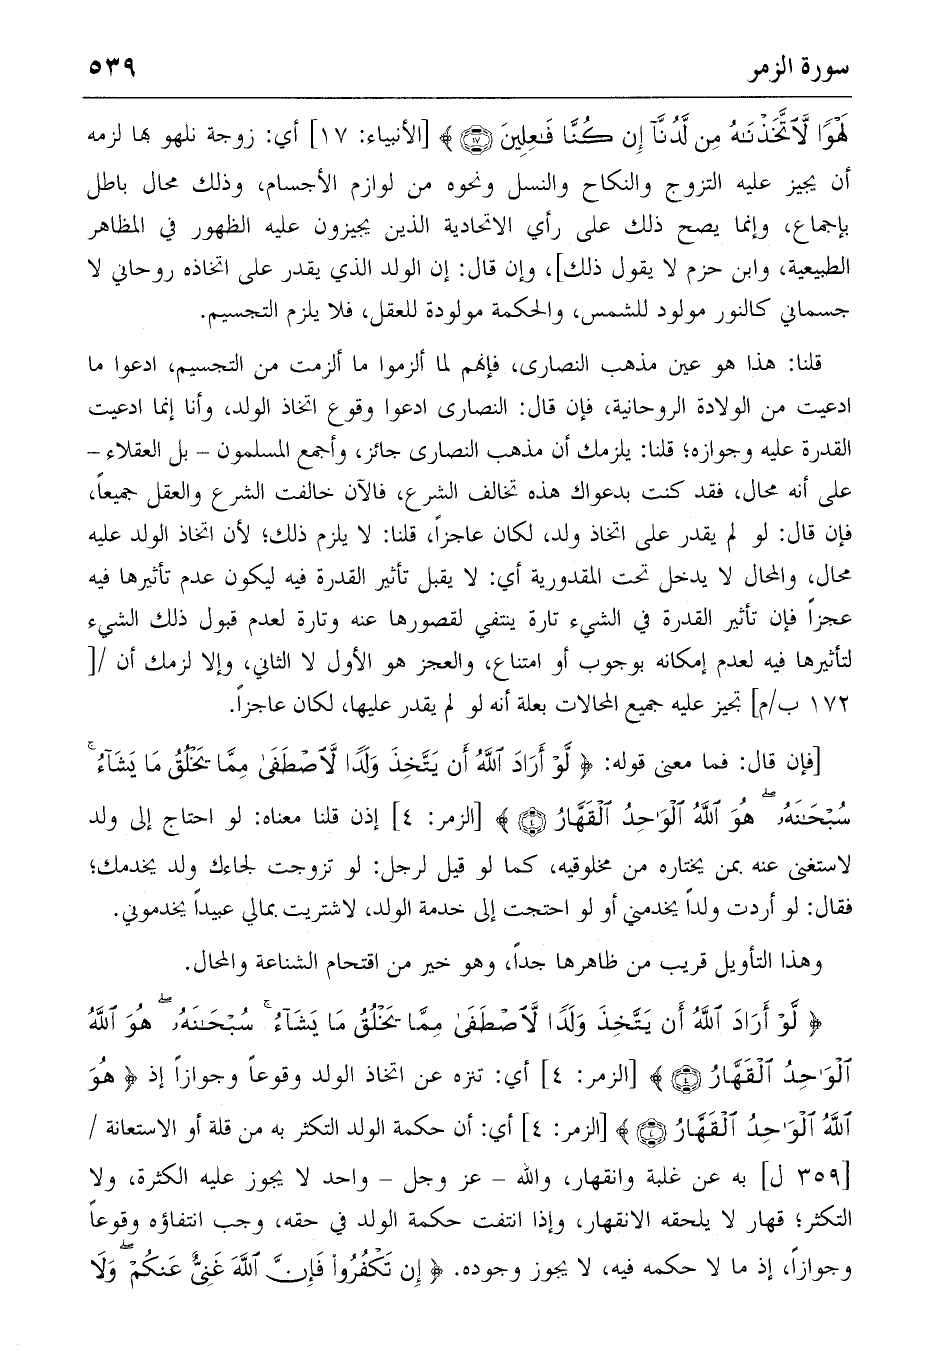 سورة الزمر ٥٣٩
لَهْوًا لَّاتَّخَذْنَاهُ مِن لَّدُنَّا إِن كُنَّا فَاعِلِينَ ﴿١٧﴾ [الأنبياء: ١٧] أي: زوجة نلهو بها لزمه
أن يجيز عليه التزوج والنكاح والنسل ونحوه من لوازم الأجسام، وذلك محال باطل
بإجماع، وإنما يصح ذلك على رأي الاتحادية الذين يجيزون عليه الظهور في المظاهر
الطبيعية، وابن حزم لا يقول ذلك]، وإن قال: إن الولد الذي يقدر على اتخاذه روحاني لا
جسماني كالنور مولود للشمس، والحكمة مولودة للعقل، فلا يلزم التجسيم.
قلنا: هذا هو عين مذهب النصارى، فإنهم لما ألزموا ما ألزمت من التجسيم، ادعوا ما
ادعيت من الولادة الروحانية، فإن قال: النصارى ادعوا وقوع اتخاذ الولد، وأنا إنما ادعيت
القدرة عليه وجوازه؛ قلنا: يلزمك أن مذهب النصارى جائز، وأجمع المسلمون – بل العقلاء –
على أنه محال، فقد كنت بدعواك هذه تخالف الشرع، فالآن خالفت الشرع والعقل جميعاً،
فإن قال: لو لم يقدر على اتخاذ ولد، لكان عاجزاً، قلنا: لا يلزم ذلك؛ لأن اتخاذ الولد عليه
محال، والمحال لا يدخل تحت المقدورية أي: لا يقبل تأثير القدرة فيه ليكون عدم تأثيرها فيه
عجزاً فإن تأثير القدرة في الشيء تارة ينتفي لقصورها عنه وتارة لعدم قبول ذلك الشيء
لتأثيرها فيه لعدم إمكانه بوجوب أو امتناع، والعجز هو الأول لا الثاني، وإلا لزمك أن /[
١٧٢ ب/م] تجيز عليه جميع المحالات بعلة أنه لو لم يقدر عليها، لكان عاجزاً.
[فإن قال: فما معنى قوله: ﴿ لَّوْ أَرَادَ اللَّهُ أَن يَتَّخِذَ وَلَدًا لَّاصْطَفَىٰ مِمَّا يَخْلُقُ مَا يَشَاءُ ۚ
سُبْحَانَهُ ۖ هُوَ اللَّهُ الْوَاحِدُ الْقَهَّارُ ﴿٤﴾ [الزمر: ٤] إذن قلنا معناه: لو احتاج إلى ولد
لاستغنى عنه بمن يختاره من مخلوقيه، كما لو قيل لرجل: لو تزوجت لجاءك ولد يخدمك؛
فقال: لو أردت ولداً يخدمني أو لو احتجت إلى خدمة الولد، لاشتريت بمالي عبيداً يخدموني.
وهذا التأويل قريب من ظاهرها جداً، وهو خير من اقتحام الشناعة والمحال.
﴿ لَّوْ أَرَادَ اللَّهُ أَن يَتَّخِذَ وَلَدًا لَّاصْطَفَىٰ مِمَّا يَخْلُقُ مَا يَشَاءُ ۚ سُبْحَانَهُ ۖ هُوَ اللَّهُ
الْوَاحِدُ الْقَهَّارُ ﴿٤﴾ [الزمر: ٤] أي: تنزه عن اتخاذ الولد وقوعاً وجوازاً إذ ﴿ هُوَ
اللَّهُ الْوَاحِدُ الْقَهَّارُ ﴿٤﴾ [الزمر: ٤] أي: أن حكمة الولد التكثر به من قلة أو الاستعانة /
[٣٥٩ ل] به عن غلبة وانقهار، والله – عز وجل – واحد لا يجوز عليه الكثرة، ولا
التكثر؛ قهار لا يلحقه الانقهار، وإذا انتفت حكمة الولد في حقه، وجب انتفاؤه وقوعاً
وجوازاً، إذ ما لا حكمه فيه، لا يجوز وجوده. ﴿ إِن تَكْفُرُوا فَإِنَّ اللَّهَ غَنِيٌّ عَنكُمْ ۖ وَلَا